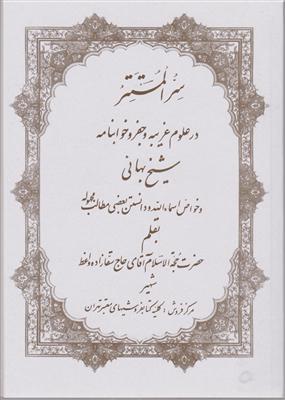 سِرُّ الْمُسْتَتِرْ
در علوم غریبه و جفر و خوابنامه
شیخ بهائی
و خواص اسماءالله و دانستن بعضی مطالب مجهوله
بقلم
حضرت حجة الاسلام آقای حاج سقازاده واعظ
شهیر
مرکز فروش : کلیه کتابفروشیهای معتبر تهران